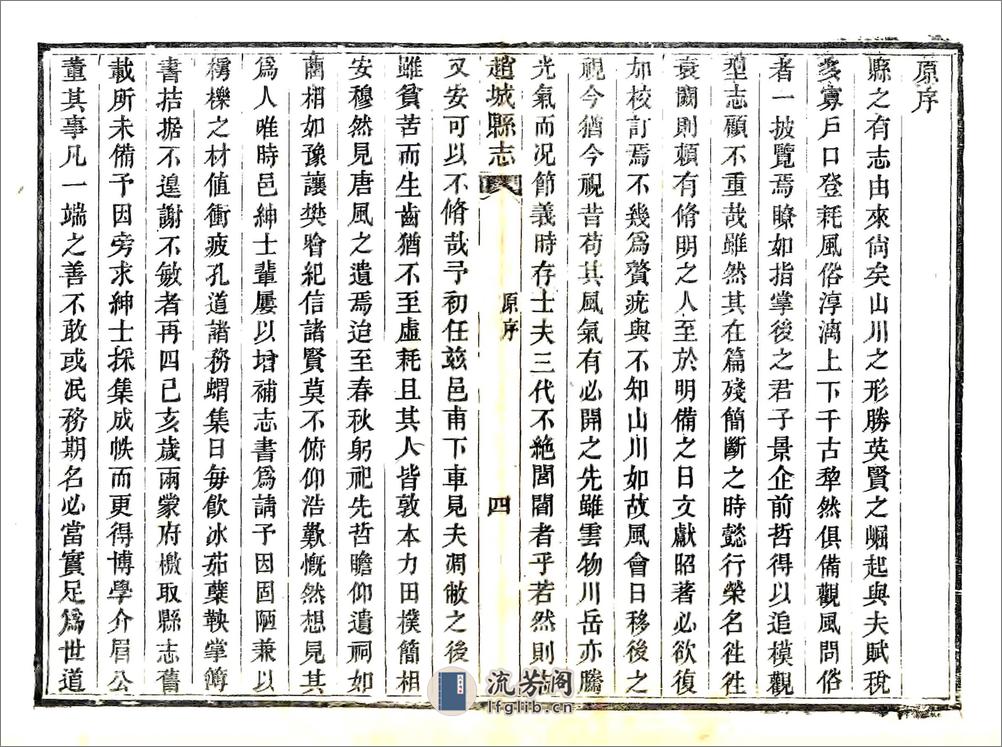 原序
縣之有志由來尙矣山川之形勝英賢之崛起與夫賦稅
多寡戶口登耗風俗淳漓上下千古犂然俱備觀風問俗
者一披覽焉瞭如指掌後之君子景企前哲得以追模觀
型志顧不重哉雖然其在篇殘簡斷之時懿行榮名徃徃
衰闕則頼有脩明之人至於明備之日文獻昭著必欲復
加校訂焉不幾爲贅疣與不知山川如故風會日移後之
視今猶今視昔苟其風氣有必開之先雖雲物川岳亦騰
光氣而况節義時存士夫三代不絶閭閻者乎若然則
趙城縣志
原序
四
又安可以不脩哉予初任兹邑甫下車見夫凋敝之後
雖貧苦而生齒猶不至虛耗且其人皆敦本力田樸簡相
安穆然見唐風之遺焉迨至春秋躬祀先哲瞻仰遺祠如
藺相如豫讓樊噲紀信諸賢莫不俯仰浩歎慨然想見其
爲人唯時邑紳士輩屢以增補志書爲請予因固陋兼以
樗櫟之材值衝疲孔道諸務蝟集日每飲冰茹蘗鞅掌簿
書拮据不遑謝不敏者再四己亥歲兩蒙府檄取縣志舊
載所未備予因旁求紳士採集成帙而更得博學介眉公
董其事凡一端之善不敢或泯務期名必當實足爲世道
流芳阁
lfglib.cn